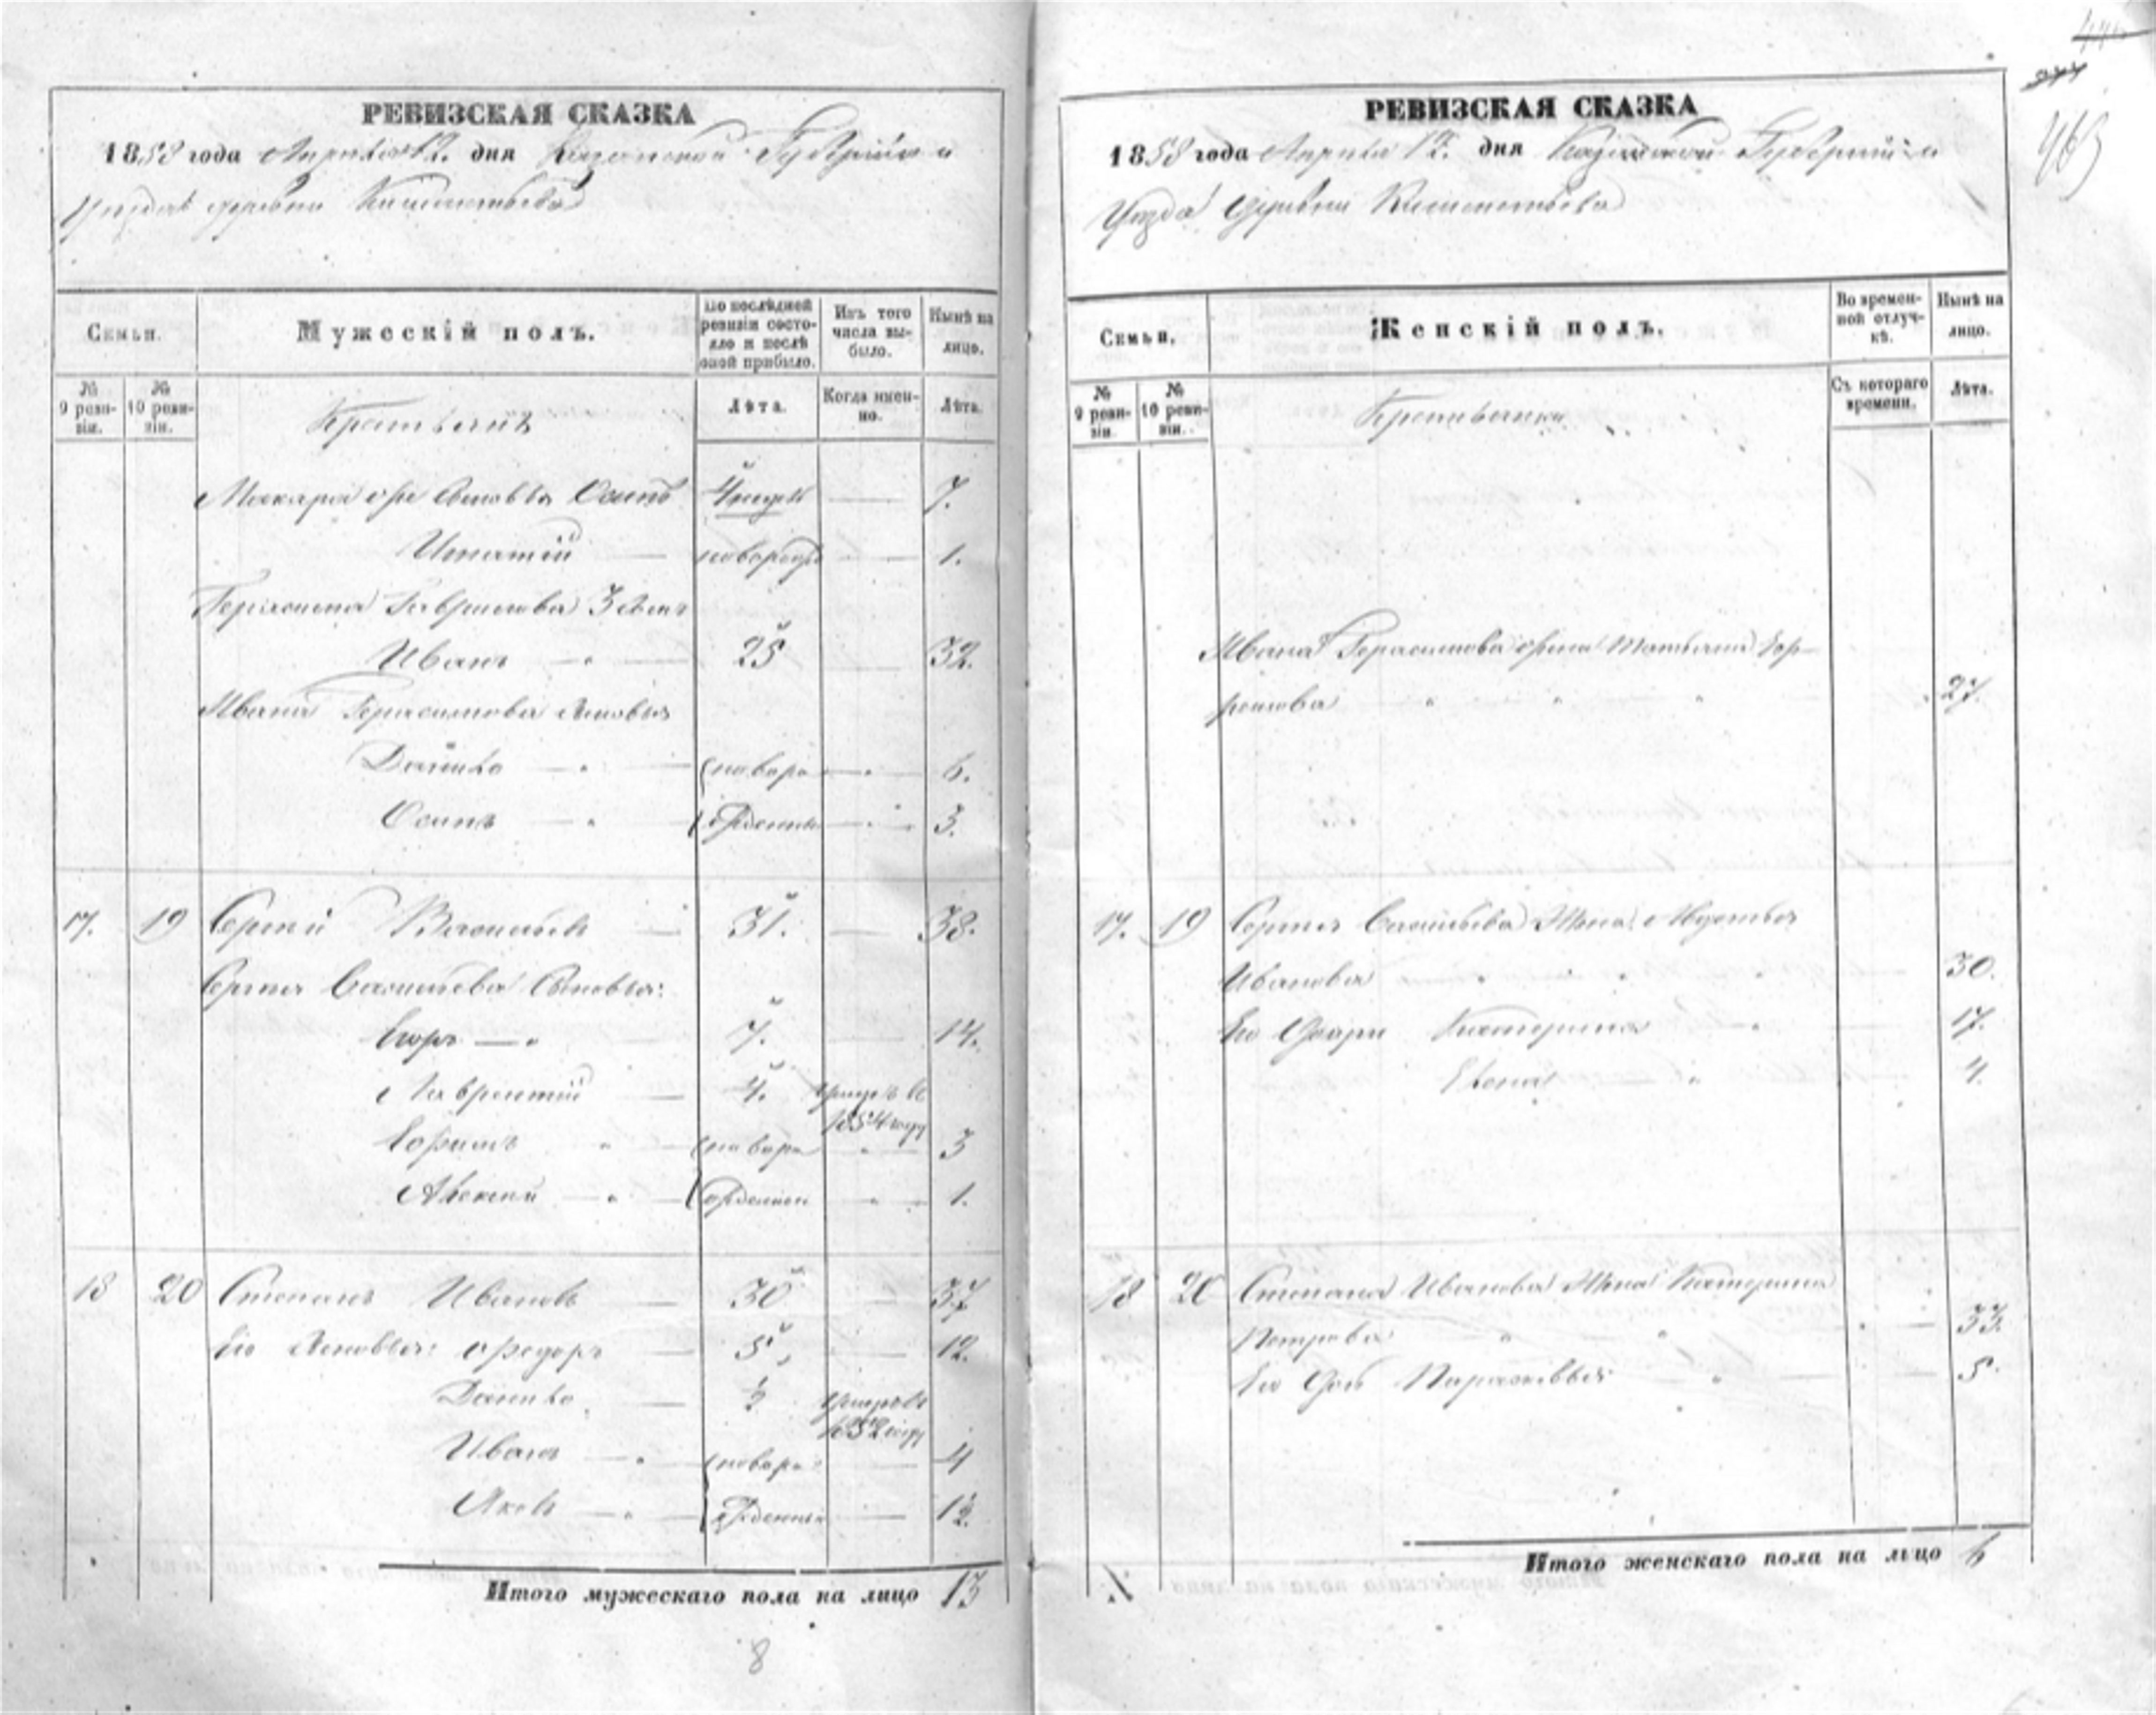 РЕВИЗСКАЯ СКАЗКА
1858 года Апреля 12. дня Казанской Губерніи и
Уезда деревни
Семьи.
Мужескій полъ.
По послѣдней ревизіи состояло и послѣ оной прибыло.
Изъ того числа выбыло.
Нынѣ на лицо.
№ 9 ревизіи.
№ 10 ревизіи.
Крестьянѣ
Лѣта.
Когда именно.
Лѣта.
Макара Сыновья Осипъ 7.
Игнатій — новорожд — 1.
Герасима Гаврилова 3 Сынъ
Иванъ — 25 — 32.
Ивана Герасимова Сыновья
Данило — новоро — 6.
Осипъ — жденные — 3.
17. 19 Сергѣй Васильевъ — 31. — 38.
Сергея Васильева Сыновья:
Егоръ — 7. 14.
Лаврентій — 4. умеръ въ
1854 году
Ефимъ — новоро — 3
Алексей — жденные — 1.
18 20 Степанъ Ивановъ — 30 — 37
Его Сыновья: Федоръ — 5 — 12.
Данило — ½ умеръ въ
1852 году
Иванъ — новоро — 4
Яковъ — жденные — 1½.
Итого мужескаго пола на лицо 13
8
463
РЕВИЗСКАЯ СКАЗКА
1858 года Апреля 12. дня Казанской Губерніи и
Уезда Деревни
Семьи.
Женскій полъ.
Во временной отлучкѣ.
Нынѣ на лицо.
№ 9 ревизіи.
№ 10 ревизіи.
Крестьянки
Съ котораго времени.
Лѣта.
Ивана Герасимова жена Татьяна
27.
17. 19 Сергея Васильева Жена
Иванова 30.
Его Дочери Катерина 17.
Елена 4.
18 20 Степана Иванова Жена Катерина
Петрова — 33.
Его Дочь Парасковья — 5.
Итого женскаго пола на лицо 6